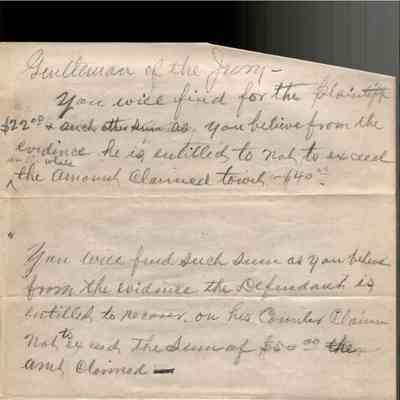 Gentleman of the Jury —
You will find for the plaintiff
$22.00 & such other sum as you believe from the
evidence he is entitled to not to exceed
the amount Claimed towit — $40.00
You will find such sum as you believe
from the evidence the Defendant is
entitled to recover on his Counter Claim
not to exceed the sum of $50.00 the
amt Claimed —